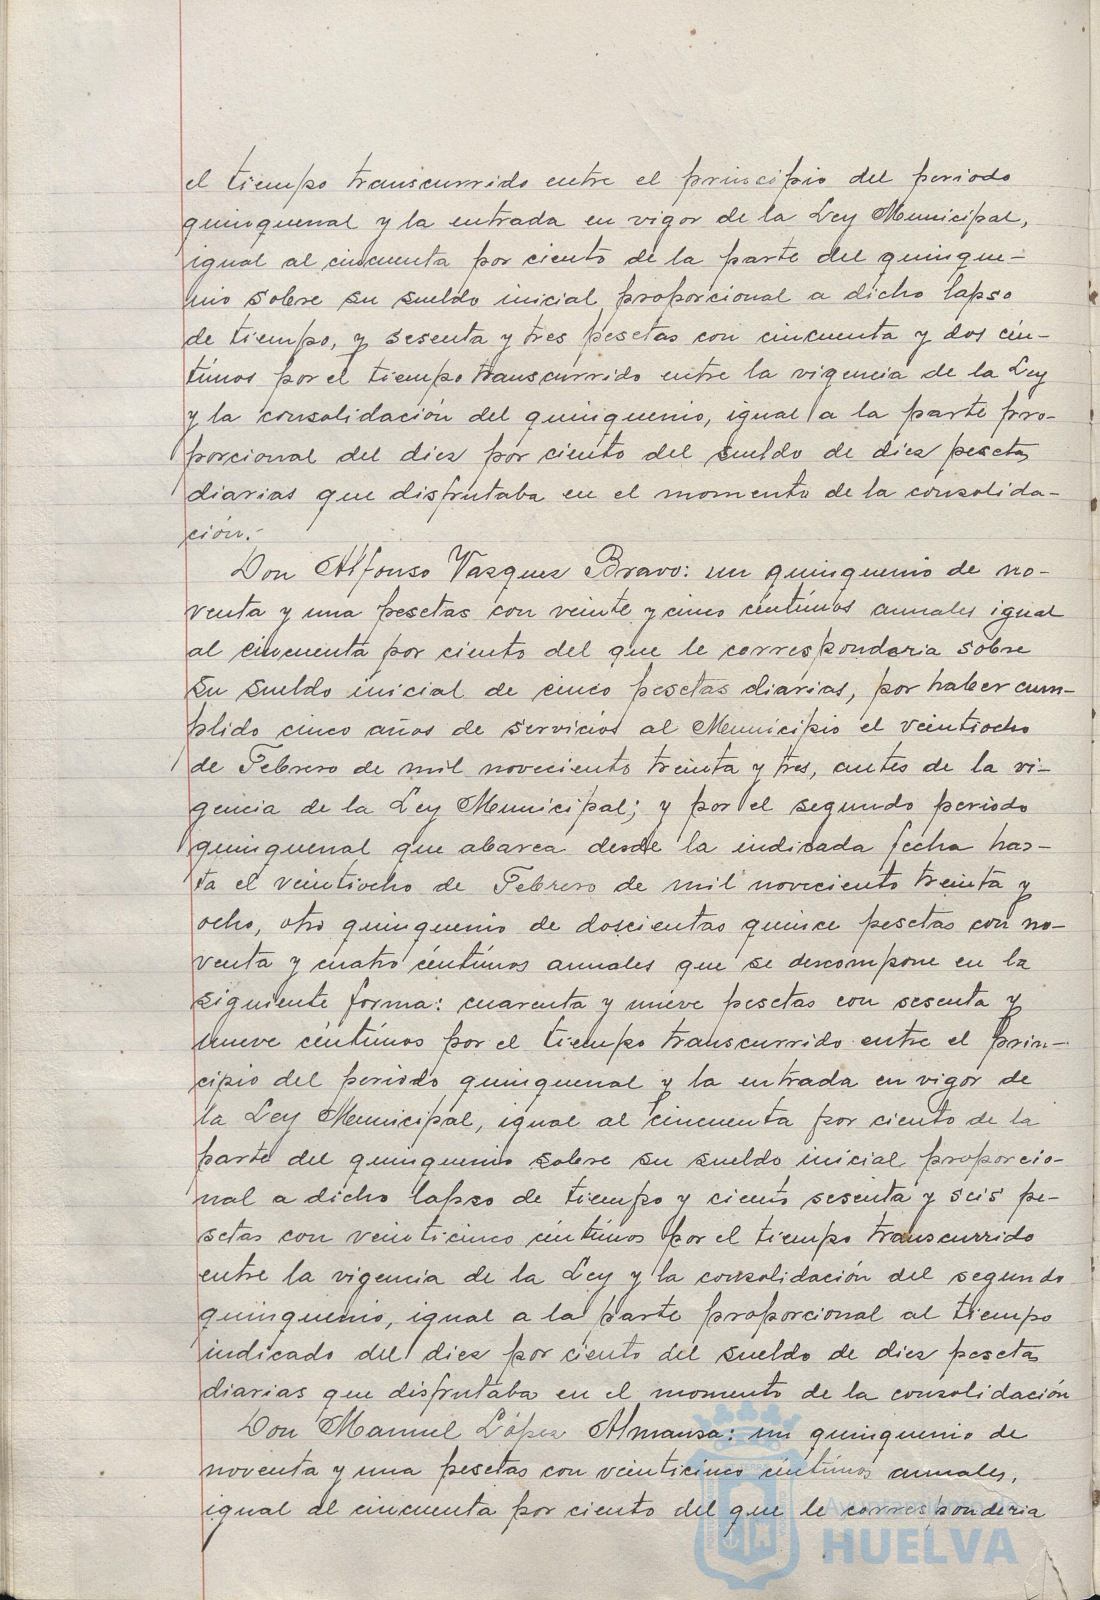 el tiempo transcurrido entre el principio del periodo
quinquenal y la entrada en vigor de la Ley Municipal,
igual al cincuenta por ciento de la parte del quinque-
nio sobre su sueldo inicial proporcional a dicho lapso
de tiempo, y sesenta y tres pesetas con cincuenta y dos cén-
timos por el tiempo transcurrido entre la vigencia de la Ley
y la consolidación del quinquenio, igual a la parte pro-
porcional del diez por ciento del sueldo de diez pesetas
diarias que disfrutaba en el momento de la consolida-
ción.-
Don Alfonso Vazquez Bravo: un quinquenio de no-
venta y una pesetas con veinte y cinco céntimos anuales igual
al cincuenta por ciento del que le corresponderia sobre
su sueldo inicial de cinco pesetas diarias, por haber cum-
plido cinco años de servicios al Municipio el veintiocho
de Febrero de mil noveciento treinta y tres, antes de la vi-
gencia de la Ley Municipal; y por el segundo periodo
quinquenal que abarca desde la indicada fecha has-
ta el veintiocho de Febrero de mil noveciento treinta y
ocho, otro quinquenio de doscientas quince pesetas con no-
venta y cuatro céntimos anuales que se descompone en la
siguiente forma: cuarenta y nueve pesetas con sesenta y
nueve céntimos por el tiempo transcurrido entre el prin-
cipio del periodo quinquenal y la entrada en vigor de
la Ley Municipal, igual al cincuenta por ciento de la
parte del quinquenio sobre su sueldo inicial proporcio-
nal a dicho lapso de tiempo y ciento sesenta y seis pe-
setas con veinticinco céntimos por el tiempo transcurrido
entre la vigencia de la Ley y la consolidación del segundo
quinquenio, igual a la parte proporcional al tiempo
indicado del diez por ciento del sueldo de diez pesetas
diarias que disfrutaba en el momento de la consolidación
Don Manuel López Almansa: un quinquenio de
noventa y una pesetas con veinticinco céntimos anuales,
igual al cincuenta por ciento del que le corresponderia
Ayuntamiento de
HUELVA